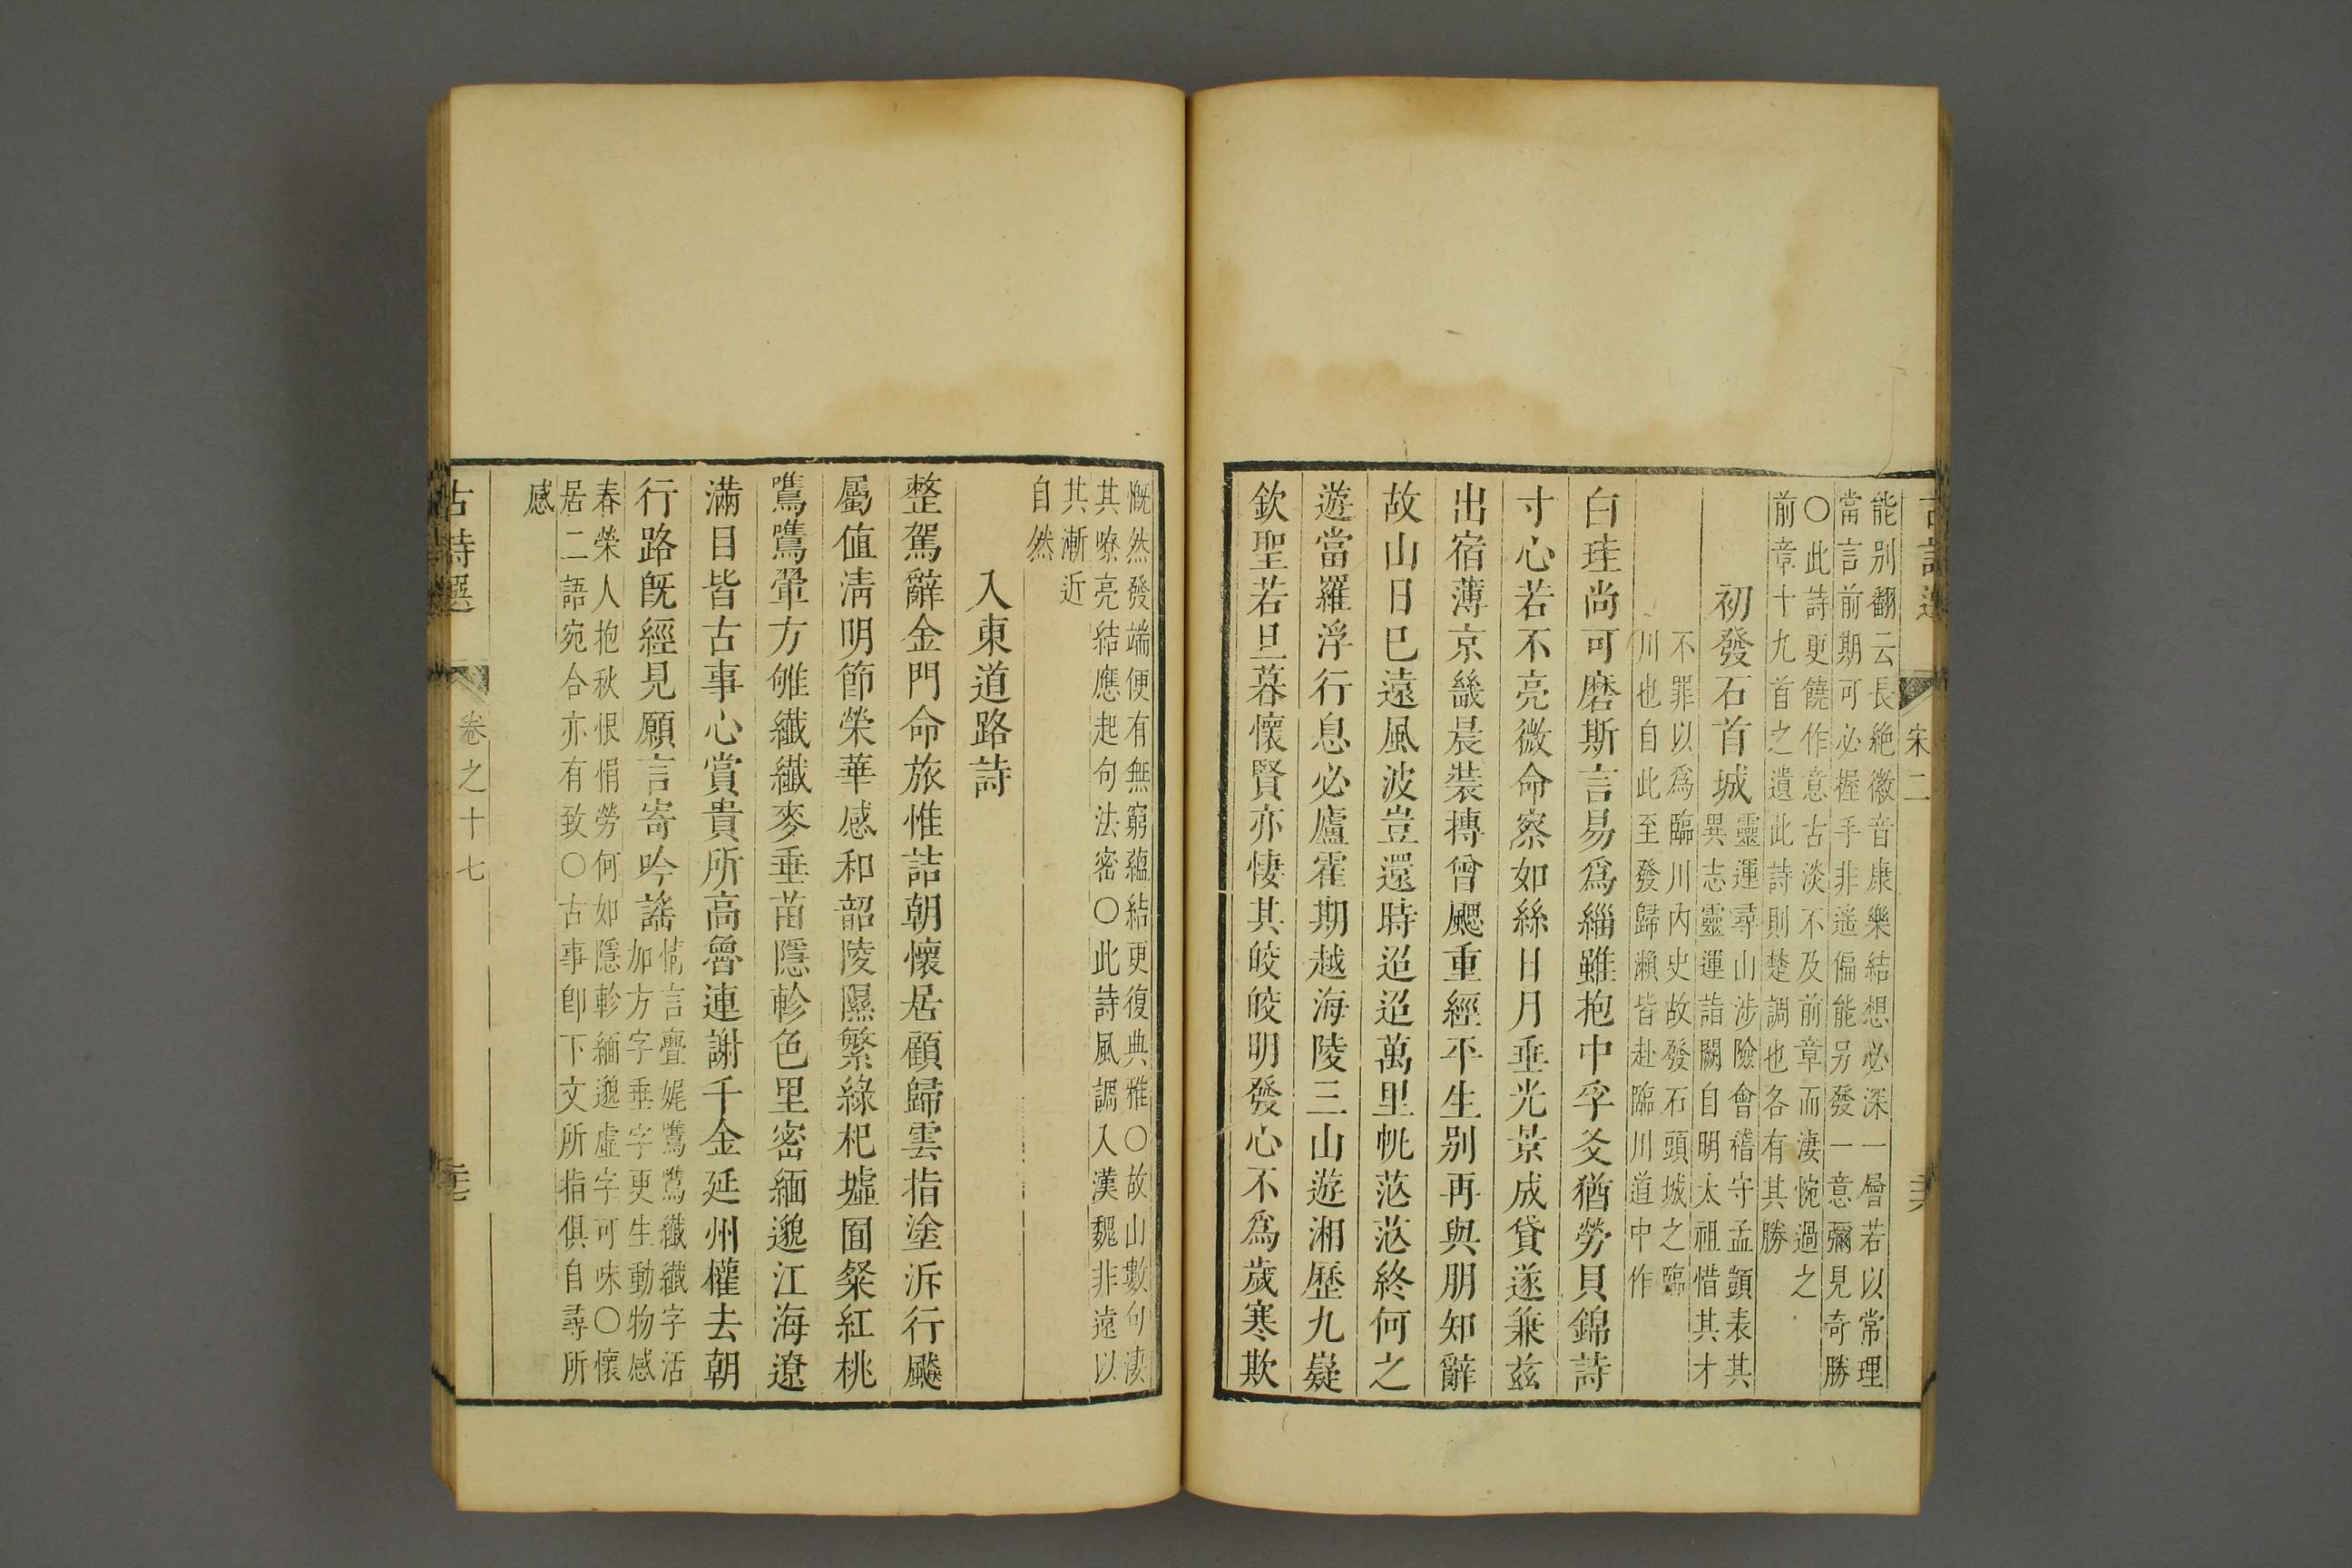 古詩選
宋二
能別翻云長絶徽音康樂結想必深一層若以常理
當言前期可必握手非遙偏能另發一意彌見奇勝
○此詩更饒作意古淡不及前章而淒惋過之
前章十九首之遺此詩則楚調也各有其勝
初發石首城
靈運尋山涉險會稽守孟顗表其
異志靈運詣闕自明太祖惜其才
不罪以爲臨川內史故發石頭城之臨
川也自此至發歸瀨皆赴臨川道中作
白珪尚可磨斯言易爲緇雖抱中孚爻猶勞貝錦詩
寸心若不亮微命察如絲日月垂光景成貸遂兼茲
出宿薄京畿晨裝摶曾颸重經平生別再與朋知辭
故山日已遠風波豈還時迢迢萬里帆茫茫終何之
遊當羅浮行息必廬霍期越海陵三山遊湘歷九嶷
欽聖若旦暮懷賢亦悽其皎皎明發心不爲歲寒欺
慨然發端便有無窮蘊結更復典雅○故山數句淒
其嘹亮結應起句法密○此詩風調入漢魏非遠以
其漸近
自然
入東道路詩
整駕辭金門命旅惟詰朝懷居顧歸雲指塗泝行飈
屬值清明節榮華感和韶陵隰繁綠杞墟囿粲紅桃
鷕鷕翬方雊纖纖麥垂苗隱軫邑里密緬邈江海遼
滿目皆古事心賞貴所高魯連謝千金延州權去朝
行路旣經見願言寄吟謠
情言亹娓鷕鷕纖纖字活
加方字垂字更生動物感
春榮人抱秋恨悁勞何如隱軫緬邈虛字可味○懷
居二語宛合亦有致○古事卽下文所指俱自尋所
感
古詩選
卷之十七